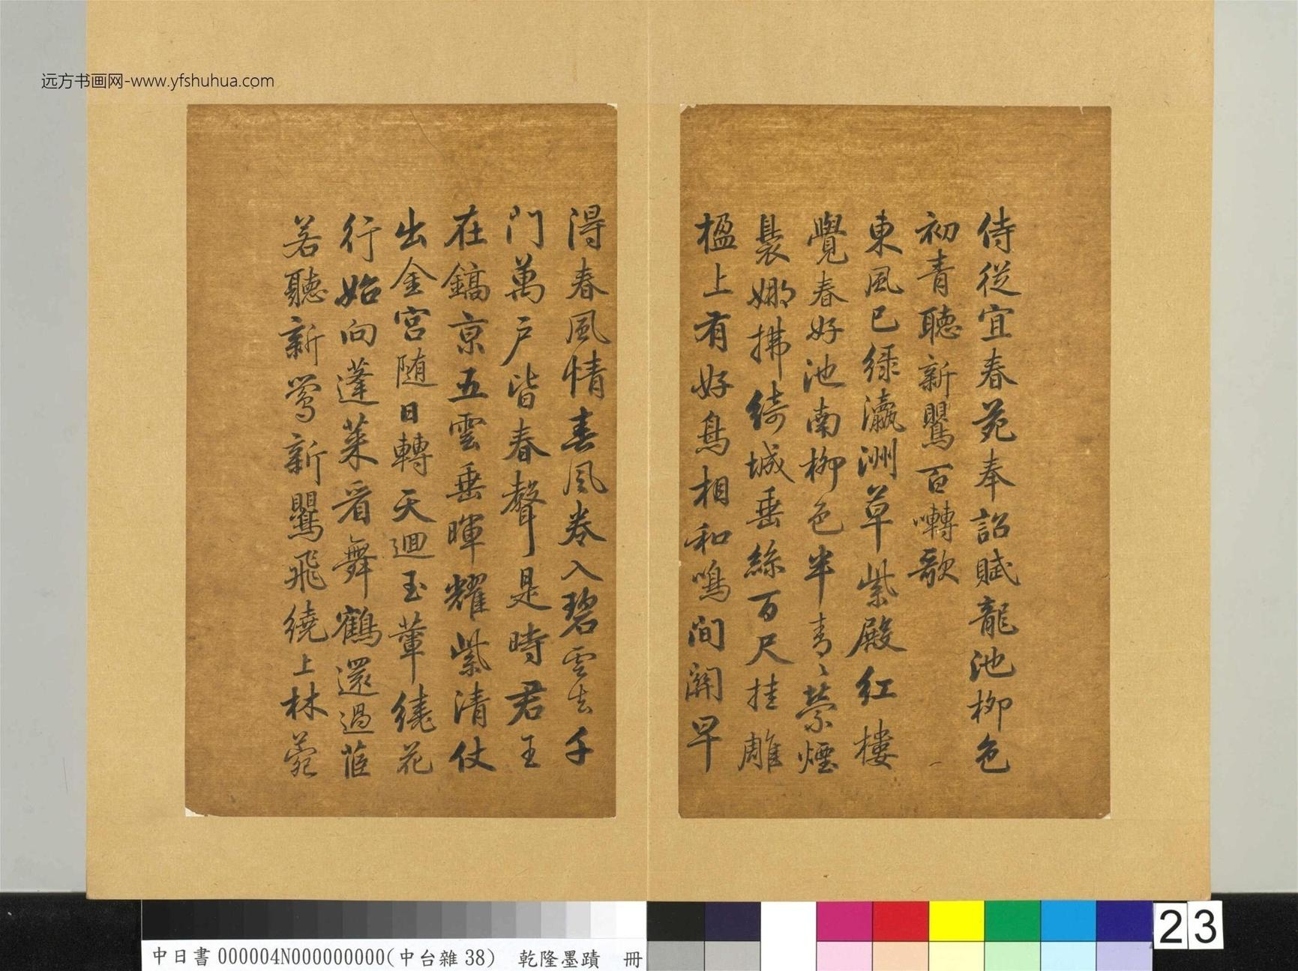 远方书画网-www.yfshuhua.com
侍從宜春苑奉詔賦龍池柳色
初青聽新鸎百囀歌
東風已綠瀛洲草紫殿紅樓
覺春好池南柳色半青〻縈煙
裊娜拂綺城垂絲百尺挂雕
楹上有好鳥相和鳴間關早
得春風情春風卷入碧雲去千
門萬戶皆春聲是時君王
在鎬京五雲垂暉耀紫清仗
出金宮隨日轉天迴玉輦繞花
行始向蓬萊看舞鶴還過茝
若聽新鶯新鸎飛繞上林苑
23
中日書000004N000000000(中台雜38) 乾隆墨蹟 冊